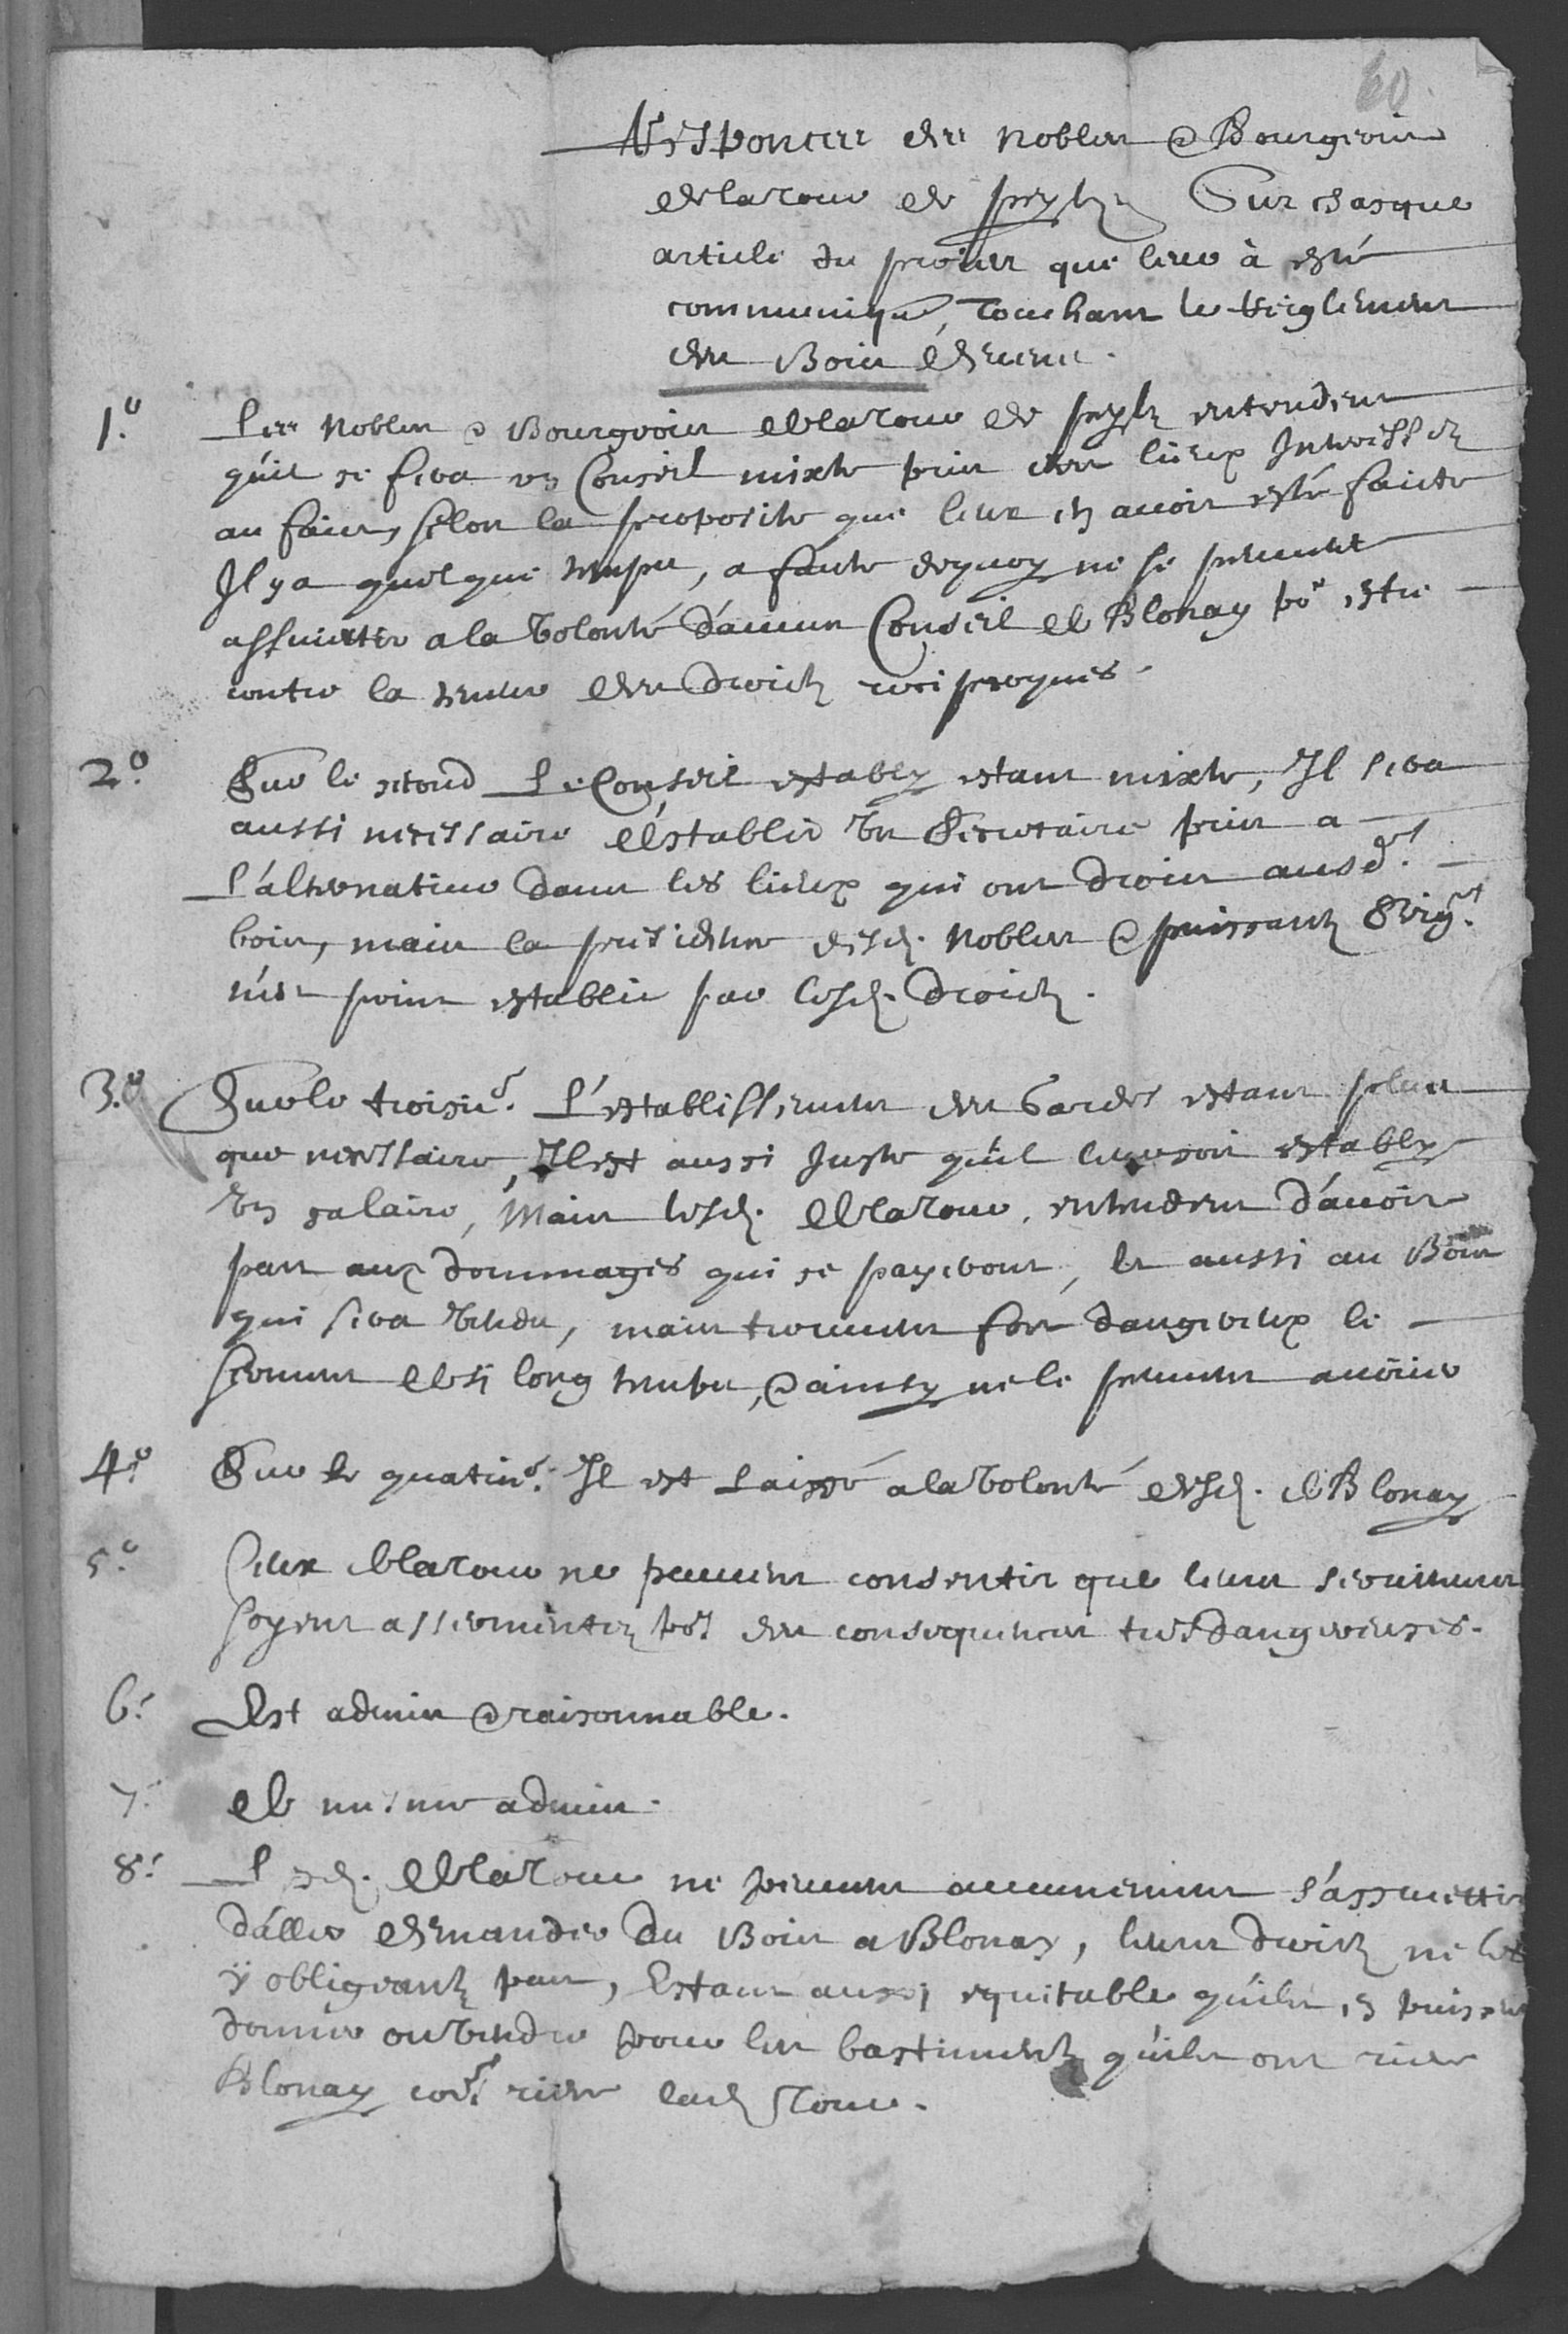 60
Responces des Nobles & Bourgeois
de la Tour de Peylz Sur chasque
article du project que leur à esté
communiqué, Touchant le Reiglement
des Bois de
1.º Les Nobles & Bourgeois de la Tour de Peylz entendent
quil se fera un Conseil mixte pris des lieux Interessez
au faict, selon la proposite que leur en avoit esté faicte
Il y a quelque temps, a faute dequoy ne se peuvent
assujettir a la volonté d'aucun Conseil de Blonay po.r estre
contre la teneur des droictz reciproques.
2.º Sur le second Le Conseil estably estant mixte, Il sera
aussi necessaire d'éstablir un Secretaire pris a
l'alternative dans les lieux qui ont droict ausd.ts
bois, mais la presidence desd. Nobles & puissantz Seig.rs
n'est point establie par lesd. droictz.
3.º Sur le troisie.e L'establissement des Gardes estant plus
que necessaire, Il est aussi Juste qu'il leur soit estably
un salaire, Mais lesd. de la Tour, entendent d'avoir
part aux dommages qui se payeront, et aussi au Bois
qui sera vendu, mais treuvent fort dangereux le
serment de si long temps, & ainsy ne le peuvent
4.º Sur le quatrie.e Il est Laissé a la volonté desd. de Blonay
5.º Ceux de la Tour ne peuvent consentir que leurs
soyent assermentez po.r des consequences tres dangereuses.
6.º Est admis & raisonnable.
7. de mesme admis.
8.º Lesd. de la Tour ne peuvent aucunement s'assujettir
d'aller demander du Bois a Blonay, leurs droictz ne les
y obligeantz pas, Estant aussi equitable quils en puissent
donner ou vendre pour les bastimentz quils ont riere
Blonay co.e riere lad. Tour.